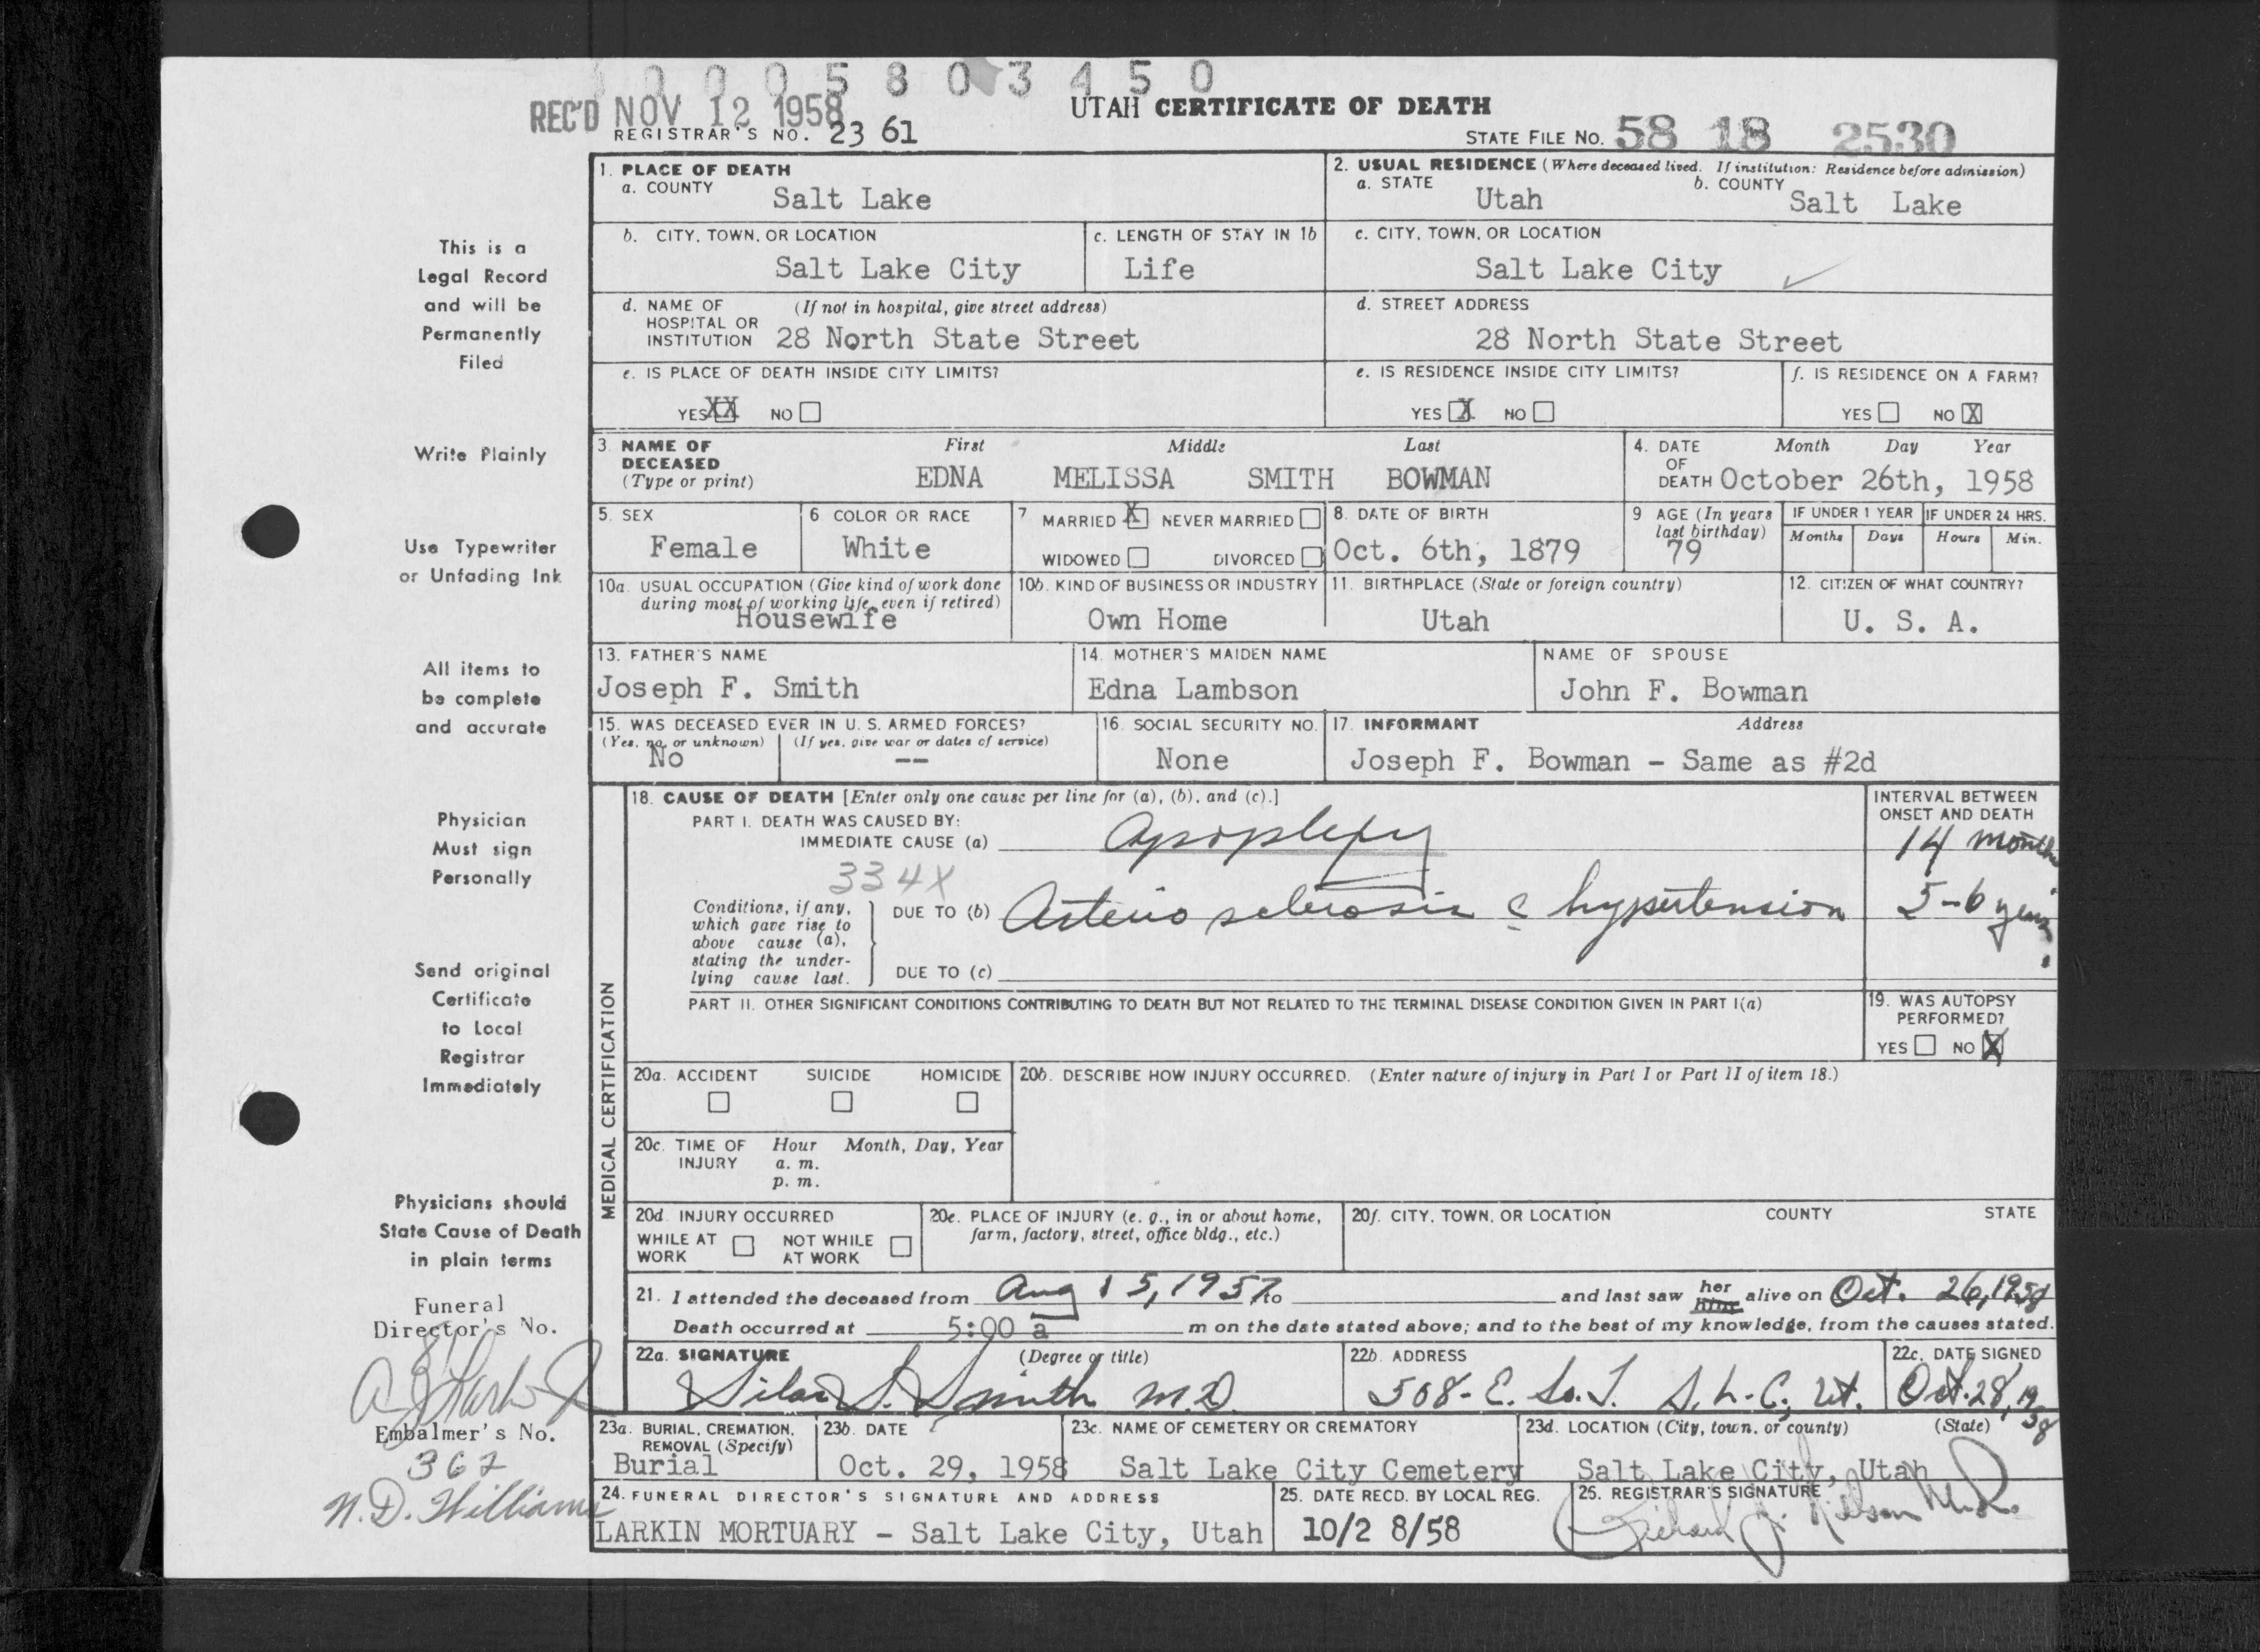 0 0 0 0 5 8 0 3 4 5 0
REC'D NOV 12 1958
UTAH CERTIFICATE OF DEATH
REGISTRAR'S NO. 23 61
STATE FILE NO. 58 18 2530
This is a
Legal Record
and will be
Permanently
Filed
Write Plainly
Use Typewriter
or Unfading Ink
All items to
be complete
and accurate
Physician
Must sign
Personally
Send original
Certificate
to Local
Registrar
Immediately
Physicians should
State Cause of Death
in plain terms
Funeral
Director's No.
Embalmer's No.
362
N. D. Williams
1. PLACE OF DEATH
a. COUNTY
Salt Lake
2. USUAL RESIDENCE (Where deceased lived. If institution: Residence before admission)
a. STATE Utah b. COUNTY Salt Lake
b. CITY, TOWN, OR LOCATION
Salt Lake City
c. LENGTH OF STAY IN 1b
Life
c. CITY, TOWN, OR LOCATION
Salt Lake City
d. NAME OF (If not in hospital, give street address)
HOSPITAL OR
INSTITUTION 28 North State Street
d. STREET ADDRESS
28 North State Street
e. IS PLACE OF DEATH INSIDE CITY LIMITS?
YES XX NO
e. IS RESIDENCE INSIDE CITY LIMITS?
YES X NO
f. IS RESIDENCE ON A FARM?
YES NO X
3. NAME OF First Middle Last
DECEASED
(Type or print) EDNA MELISSA SMITH BOWMAN
4. DATE Month Day Year
OF
DEATH October 26th, 1958
5. SEX
Female
6 COLOR OR RACE
White
7 MARRIED X NEVER MARRIED
WIDOWED DIVORCED
8. DATE OF BIRTH
Oct. 6th, 1879
9 AGE (In years
last birthday)
79
IF UNDER 1 YEAR IF UNDER 24 HRS.
Months Days Hours Min.
10a. USUAL OCCUPATION (Give kind of work done
during most of working life, even if retired)
Housewife
10b. KIND OF BUSINESS OR INDUSTRY
Own Home
11. BIRTHPLACE (State or foreign country)
Utah
12. CITIZEN OF WHAT COUNTRY?
U. S. A.
13. FATHER'S NAME
Joseph F. Smith
14. MOTHER'S MAIDEN NAME
Edna Lambson
NAME OF SPOUSE
John F. Bowman
15. WAS DECEASED EVER IN U. S. ARMED FORCES?
(Yes, no, or unknown) (If yes, give war or dates of service)
No --
16. SOCIAL SECURITY NO.
None
17. INFORMANT Address
Joseph F. Bowman - Same as #2d
MEDICAL CERTIFICATION
18. CAUSE OF DEATH [Enter only one cause per line for (a), (b), and (c).]
PART I. DEATH WAS CAUSED BY:
IMMEDIATE CAUSE (a) Apoplexy
INTERVAL BETWEEN
ONSET AND DEATH
14 months
334X
Conditions, if any,
which gave rise to
above cause (a),
stating the under-
lying cause last.
DUE TO (b) Arterio sclerosis c hypertension
5-6 years
DUE TO (c)
PART II. OTHER SIGNIFICANT CONDITIONS CONTRIBUTING TO DEATH BUT NOT RELATED TO THE TERMINAL DISEASE CONDITION GIVEN IN PART I(a)
19. WAS AUTOPSY
PERFORMED?
YES NO X
20a. ACCIDENT SUICIDE HOMICIDE
20b. DESCRIBE HOW INJURY OCCURRED. (Enter nature of injury in Part I or Part II of item 18.)
20c. TIME OF Hour Month, Day, Year
INJURY a. m.
p. m.
20d. INJURY OCCURRED
WHILE AT NOT WHILE
WORK AT WORK
20e. PLACE OF INJURY (e. g., in or about home,
farm, factory, street, office bldg., etc.)
20f. CITY, TOWN, OR LOCATION COUNTY STATE
21. I attended the deceased from Aug 15, 1957 to and last saw her him alive on Oct. 26, 1958
Death occurred at 5:00 a m on the date stated above; and to the best of my knowledge, from the causes stated.
22a. SIGNATURE (Degree or title)
Silas S. Smith M.D.
22b. ADDRESS
508- E. So. T. S. L. C., Ut.
22c. DATE SIGNED
Oct. 28, 1958
23a. BURIAL, CREMATION,
REMOVAL (Specify)
Burial
23b. DATE
Oct. 29, 1958
23c. NAME OF CEMETERY OR CREMATORY
Salt Lake City Cemetery
23d. LOCATION (City, town, or county) (State)
Salt Lake City, Utah
24. FUNERAL DIRECTOR'S SIGNATURE AND ADDRESS
LARKIN MORTUARY - Salt Lake City, Utah
25. DATE RECD. BY LOCAL REG.
10/2 8/58
26. REGISTRAR'S SIGNATURE
Richard J. Nelson M.D.